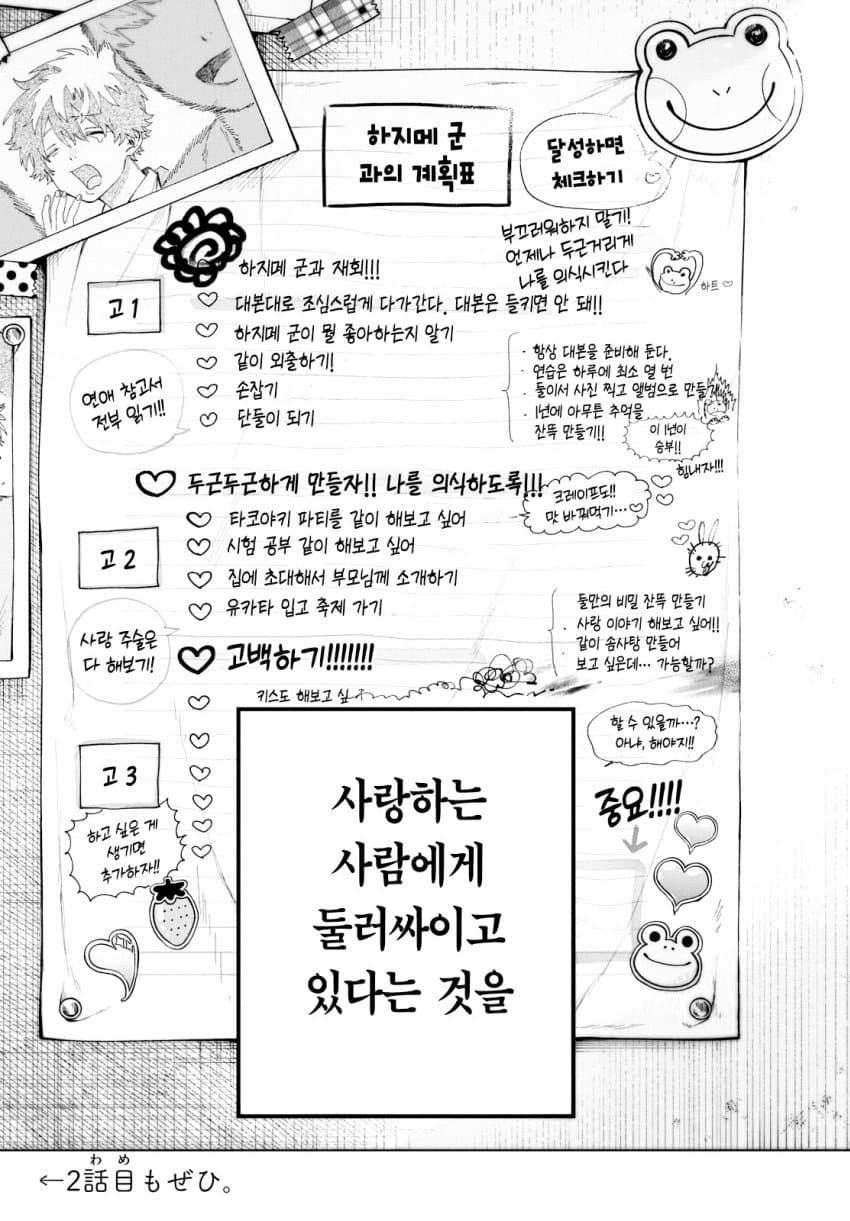 하지메 군
과의 계획표
달성하면
체크하기
부끄러워하지 말기!
언제나 두근거리게
나를 의식시킨다
하트
하지메 군과 재회!!!
고1
대본대로 조심스럽게 다가간다. 대본은 들키면 안 돼!!
하지메 군이 뭘 좋아하는지 알기
같이 외출하기!
손잡기
단둘이 되기
연애 참고서
전부 읽기!!
· 항상 대본을 준비해 둔다.
· 연습은 하루에 최소 열 번
· 둘이서 사진 찍고 앨범으로 만들기
· 1년에 아무튼 추억을
잔뜩 만들기!!
이 1년이
승부!!
힘내자!!!
두근두근하게 만들자!! 나를 의식하도록!!!
크레이프도!!
맛 바꿔먹기…
타코야키 파티를 같이 해보고 싶어
시험 공부 같이 해보고 싶어
고2
집에 초대해서 부모님께 소개하기
유카타 입고 축제 가기
사랑 주술은
다 해보기!
· 둘만의 비밀 잔뜩 만들기
· 사랑 이야기 해보고 싶어!!
· 같이 솜사탕 만들어
보고 싶은데… 가능할까?
고백하기!!!!!!!
키스도 해보고 싶
할 수 있을까…?
아냐, 해야지!!
고3
중요!!!!
하고 싶은 게
생기면
추가하자!!
사랑하는
사람에게
둘러싸이고
있다는 것을
わ め
←2話目もぜひ。